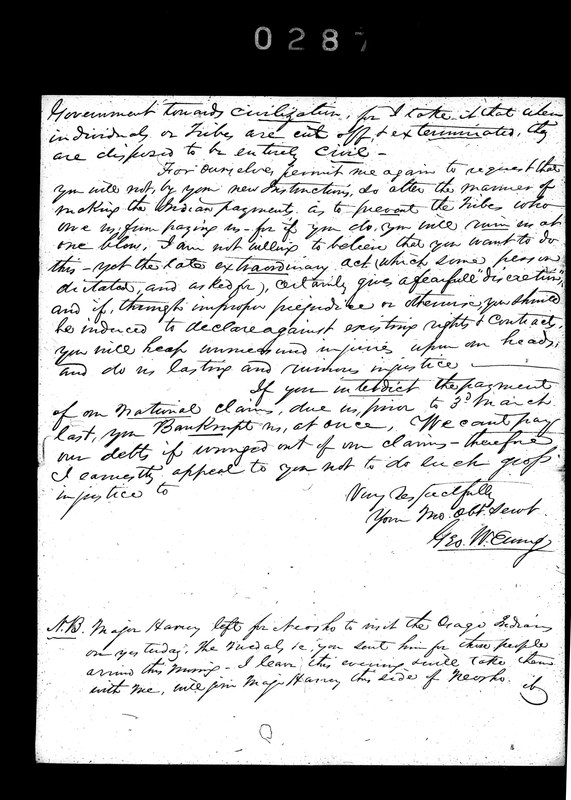 0287
Government towards civilization, for I take it that when
individuals or Tribes are cut off & exterminated, they
are disposed to be entirely civil –
For ourselves, permit me again to request that
you will not, by your new Instructions, so alter the manner of
making the Indian payments as to prevent the Tribes who
owe us, from paying us – for if you do, you will ruin us at
one blow, I am not willing to believe that you want to do
this – yet the late extraordinary act (which some person
dictated, and asked for), certainly gives a fearfull "discretion",
and if, through improper prejudice or otherwise, you should
be induced to declare against existing rights & contracts,
you will heap unmeasured injuries upon our heads,
and do us lasting and ruinous injustice
If you interdict the payment
of our National claims, due us, prior to 3d March
last, you Bankrupt us, at once, We cant pay
our debts if wronged out of our claims – therefore
I earnestly appeal to you not to do such gross
injustice to
Very respectfully
Your Mo. Obt. Servt.
Geo. W. Ewing
N.B. Major Harvey left for Neosho to visit the Osage Indians
on yesterday, The Medals, &c, you sent him for those people
arrived this Morning – I leave this evening & will take them
with me, will join Maj. Harvey this side of Neosho.